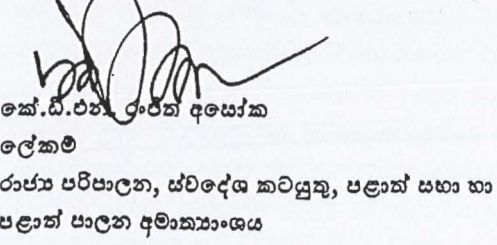 කේ.ඩී.එන්. රංජිත් අසෝක
ලේකම්
රාජ්‍ය පරිපාලන, ස්වදේශ කටයුතු, පළාත් සභා හා
පළාත් පාලන අමාත්‍යාංශය